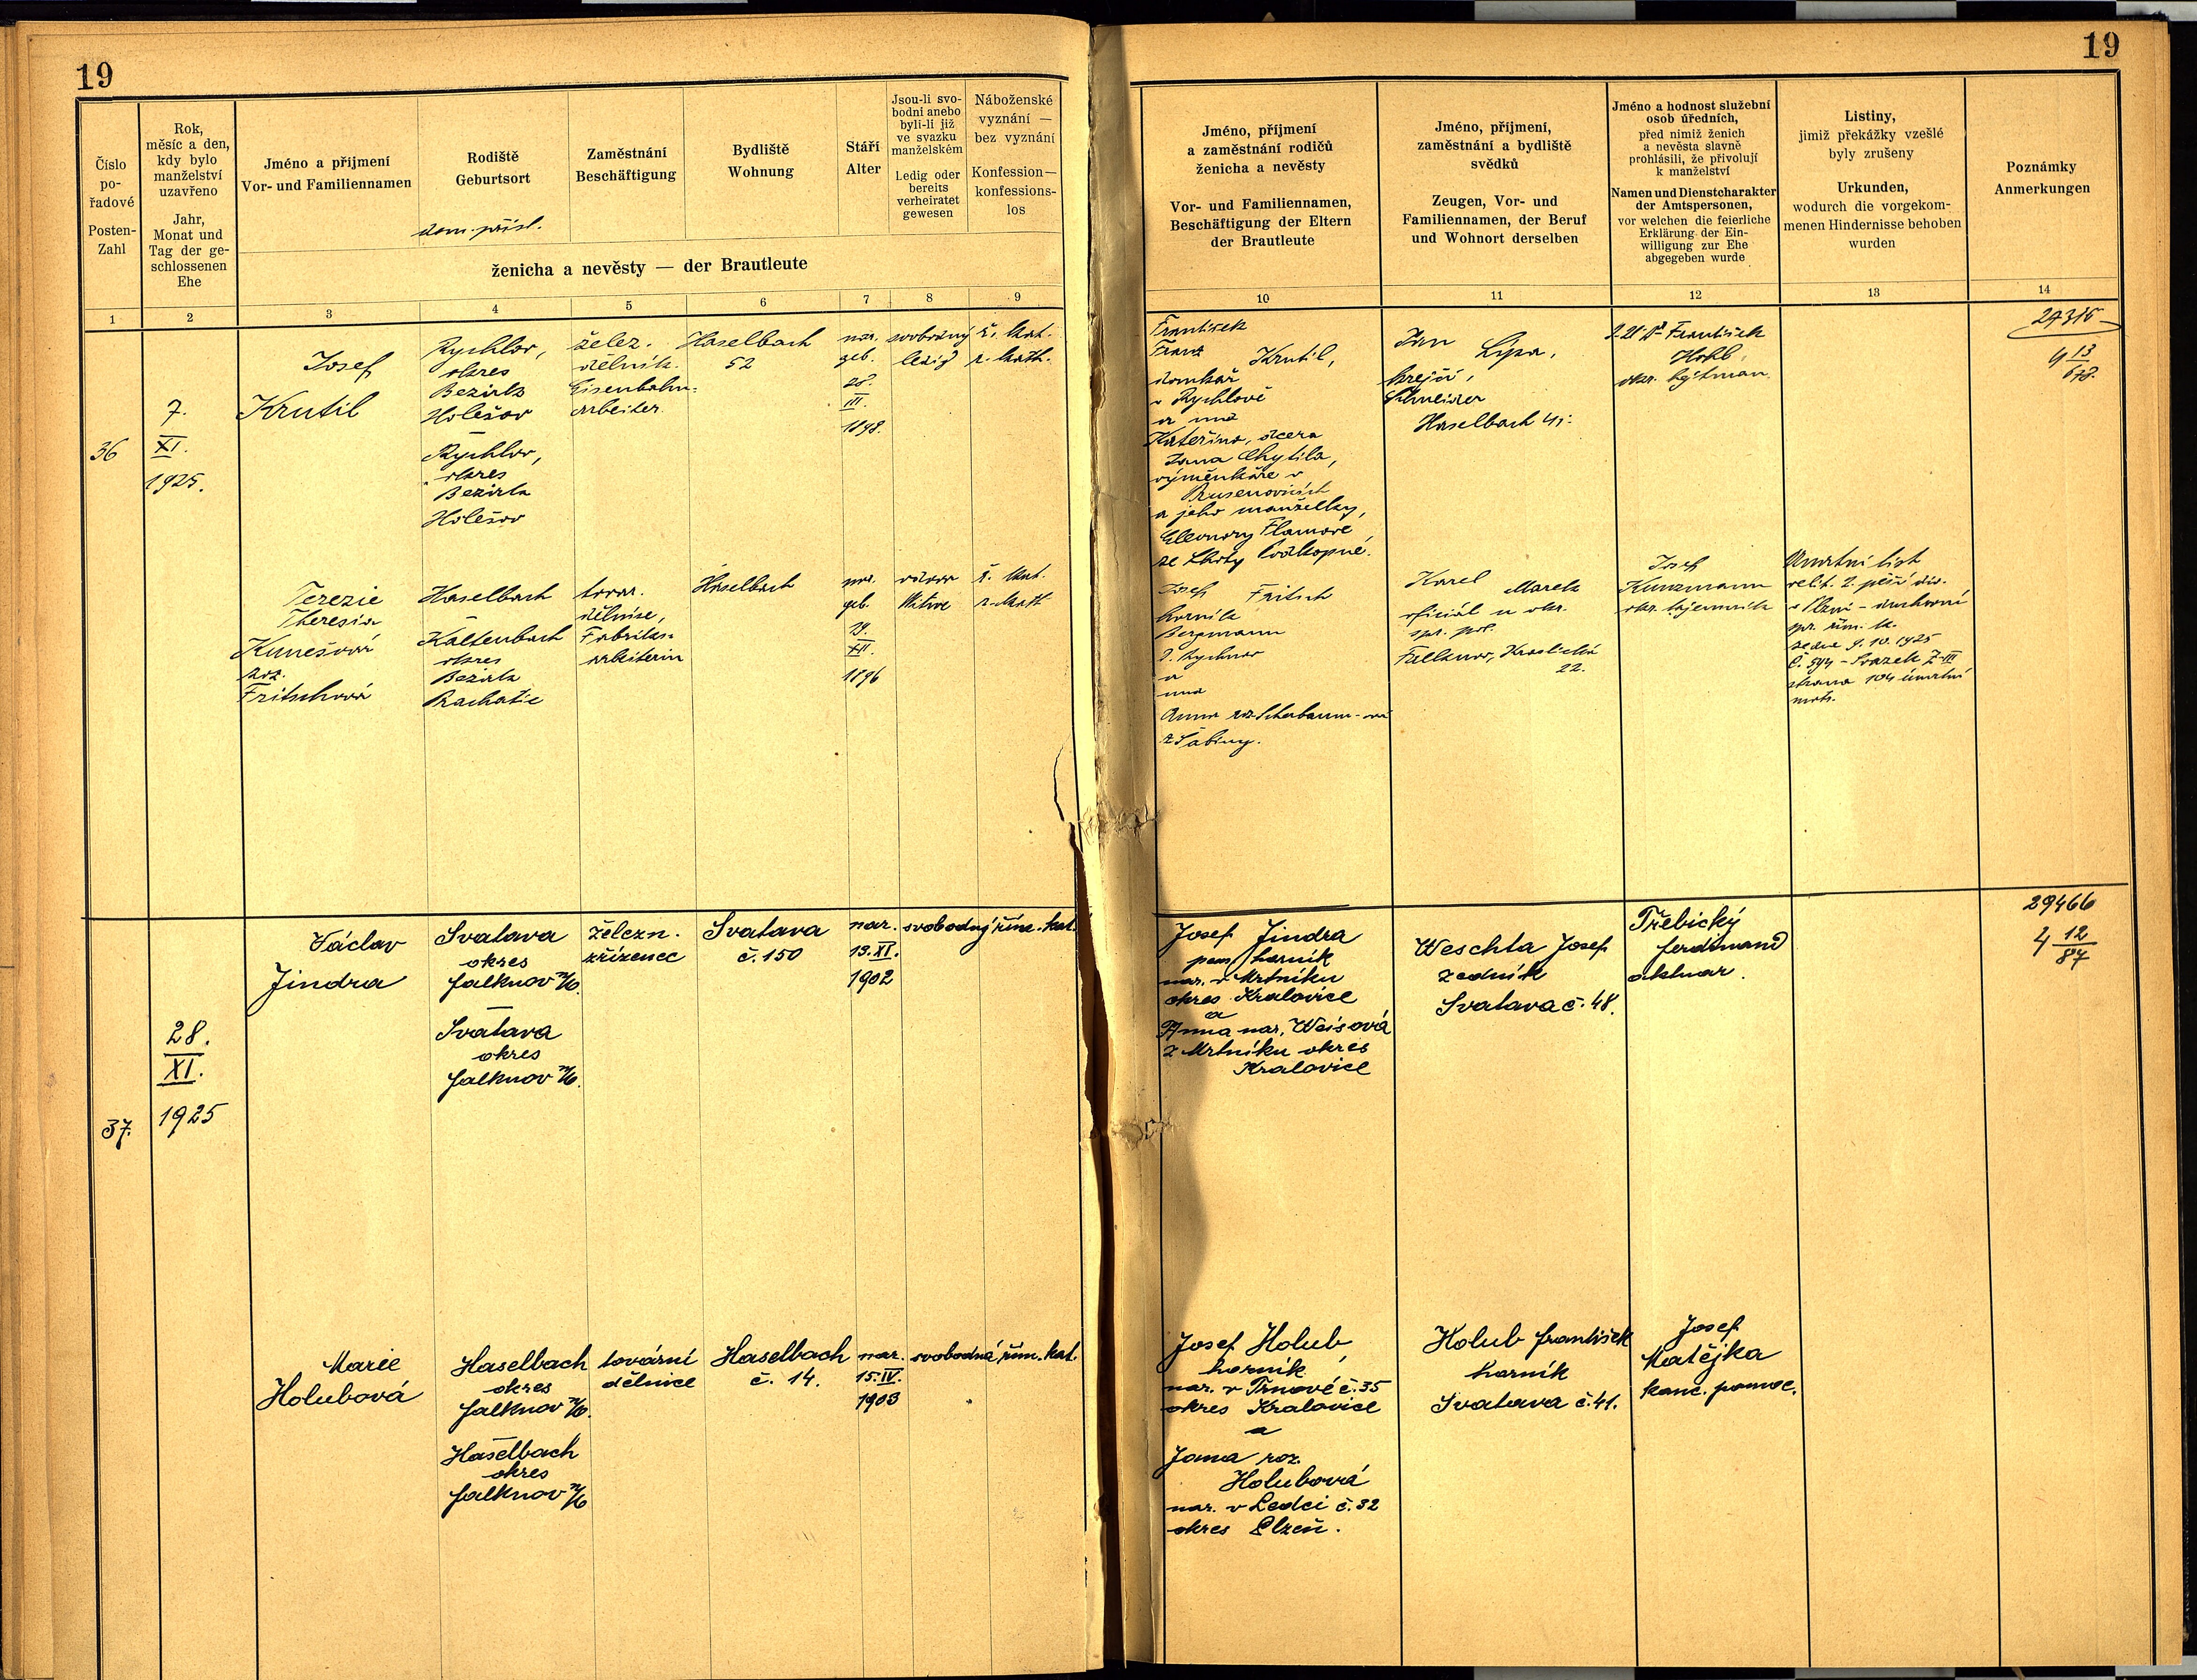 19
19
Číslo
po-
řadové
Posten-
Zahl
Rok,
měsíc a den,
kdy bylo
manželství
uzavřeno
Jahr,
Monat und
Tag der ge-
schlossenen
Ehe
Jméno a příjmení
Vor- und Familiennamen
Rodiště
Geburtsort
dom. přísl.
Zaměstnání
Beschäftigung
Bydliště
Wohnung
Stáří
Alter
Jsou-li svo-
bodni anebo
byli-li již
ve svazku
manželském
Ledig oder
bereits
verheiratet
gewesen
Náboženské
vyznání —
bez vyznání
Konfession—
konfessions-
los
ženicha a nevěsty — der Brautleute
Jméno, příjmení
a zaměstnání rodičů
ženicha a nevěsty
Vor- und Familiennamen,
Beschäftigung der Eltern
der Brautleute
Jméno, příjmení,
zaměstnání a bydliště
svědků
Zeugen, Vor- und
Familiennamen, der Beruf
und Wohnort derselben
Jméno a hodnost služební
osob úředních,
před nimiž ženich
a nevěsta slavně
prohlásili, že přivolují
k manželství
Namen und Dienstcharakter
der Amtspersonen,
vor welchen die feierliche
Erklärung der Ein-
willigung zur Ehe
abgegeben wurde
Listiny,
jimiž překážky vzešlé
byly zrušeny
Urkunden,
wodurch die vorgekom-
menen Hindernisse behoben
wurden
Poznámky
Anmerkungen
1 2 3 4 5 6 7 8 9
10 11 12 13 14
36
7.
XI.
1925.
Josef
Krutil
Rychlov,
okres
Bezirk
Holešov
Rychlov,
okres
Bezirk
Holešov
želez.
dělník.
Eisenbahn-
arbeiter.
Haselbach
52
nar.
geb.
III.
1898.
svobodný
ledig
ř. kat.
r. kath.
František
Franz Krutil,
domkář
v Rychlově
a
Kateřina, dcera
Jana Chytila,
výměnkáře v
Prusenovicích
a jeho manželky,
Eleonory Flamové
ze Lhoty
Jan Lípa,
krejčí,
Schneider
Haselbach 41.
František
okr. hejtman
Terezie
Theresia
Kunešová
roz.
Fritschová
Haselbach
Kaltenbach
okres
Bezirk
Prachatic
tovar.
dělnice,
Fabriks-
arbeiterin
Haselbach
nar.
geb.
19.
XII.
1896
vdova
Witwe
ř. kat.
r. kath
Josef Fritsch
horník
Bergmann
a
Anna roz. Scherbaum-ová
z Šabiny.
Karel Marek
oficiál u okr.
spr. pol.
Falknov, Kraslická
22.
Josef
Kunzmann
okr. tajemník
Úmrtní list
velit. 2. pěší div.
v Plzni - duchovní
spr. řím. k.
ze dne 9.10.1925
Č. 594 - Svazek Z-III
strana 104 úmrtní
matr.
37.
28.
XI.
1925
Václav
Jindra
Svatava
okres
Falknov n/O.
Svatava
okres
Falknov n/O.
železn.
zřízenec
Svatava
č. 150
nar.
13.XI.
1902
svobodný
řím. kat.
Josef Jindra
horník
nar. v Mrtníku
okres Kralovice
a
Anna nar. Weisová
z Mrtníku okres
Kralovice
Weschta Josef
zedník
Svatava č. 48.
Třebický
Ferdinand
aktuar.
29466
4 12/87
Marie
Holubová
Haselbach
okres
Falknov n/O.
Haselbach
okres
Falknov n/O
tovární
dělnice
Haselbach
č. 14.
nar.
15.IV.
1903
svobodná
řím. kat.
Josef Holub,
horník
nar. v Trnové č. 35
okres Kralovice
a
Jana roz.
Holubová
nar. v Ledci č. 32
okres Plzeň.
Holub František
horník
Svatava č. 41.
Josef
Matějka
kanc. pomoc.